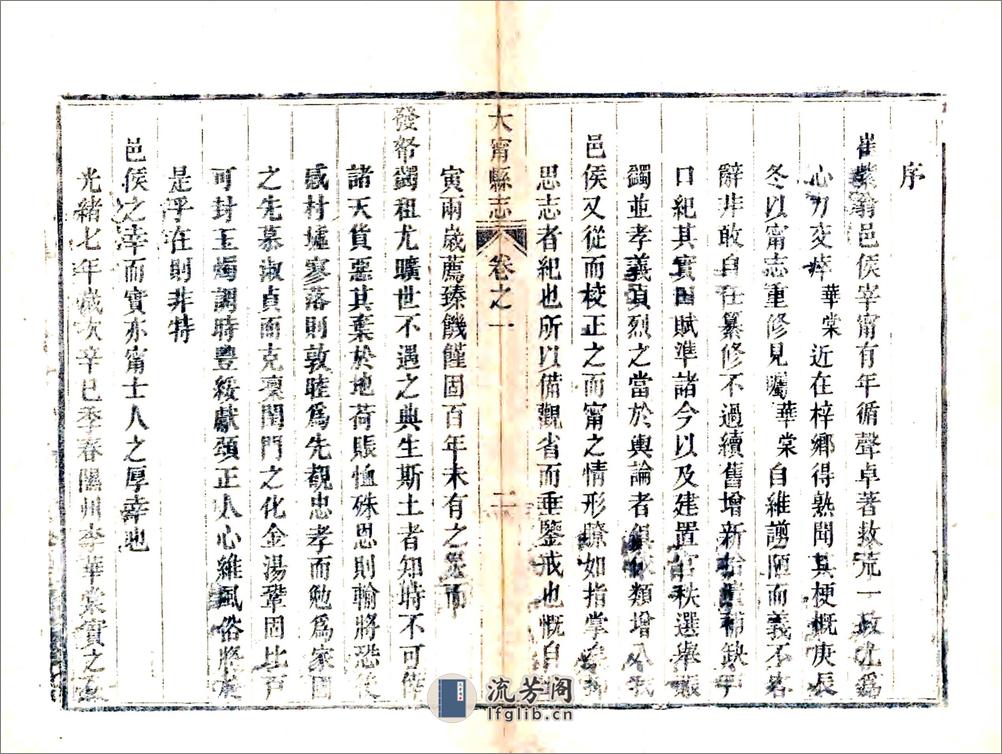 序
崔紫翁邑侯宰甯有年循聲卓著救荒一政尤爲
心力交瘁華棠近在梓鄉得熟聞其梗概庚辰
冬以甯志重修見囑華棠自維謭陋而義不容
辭非敢自任纂修不過續舊增新拾遺補缺
口紀其實田賦準諸今以及建置官秩選舉
蠲並孝義貞烈之當於輿論者俱依類增入
邑侯又從而校正之而甯之情形瞭如指掌
思志者紀也所以備觀省而垂鑒戒也慨自
大甯縣志 卷之一 二
寅兩歲薦臻饑饉固百年未有之災而
發帑蠲租尤曠世不遇之典生斯土者知時不可
諸天貨惡其棄於地荷賬恤殊恩則輸將恐後
慼村墟寥落則敦睦爲先觀忠孝而勉爲家
之先慕淑貞而克稟閨門之化金湯鞏固比戶
可封玉燭調時豊綏獻頌正人心維風俗將
是乎在則非特
邑侯之幸而實亦甯士人之厚幸也
光緒七年歲次辛巳季春隰州李華棠實之
流芳阁
lfglib.cn